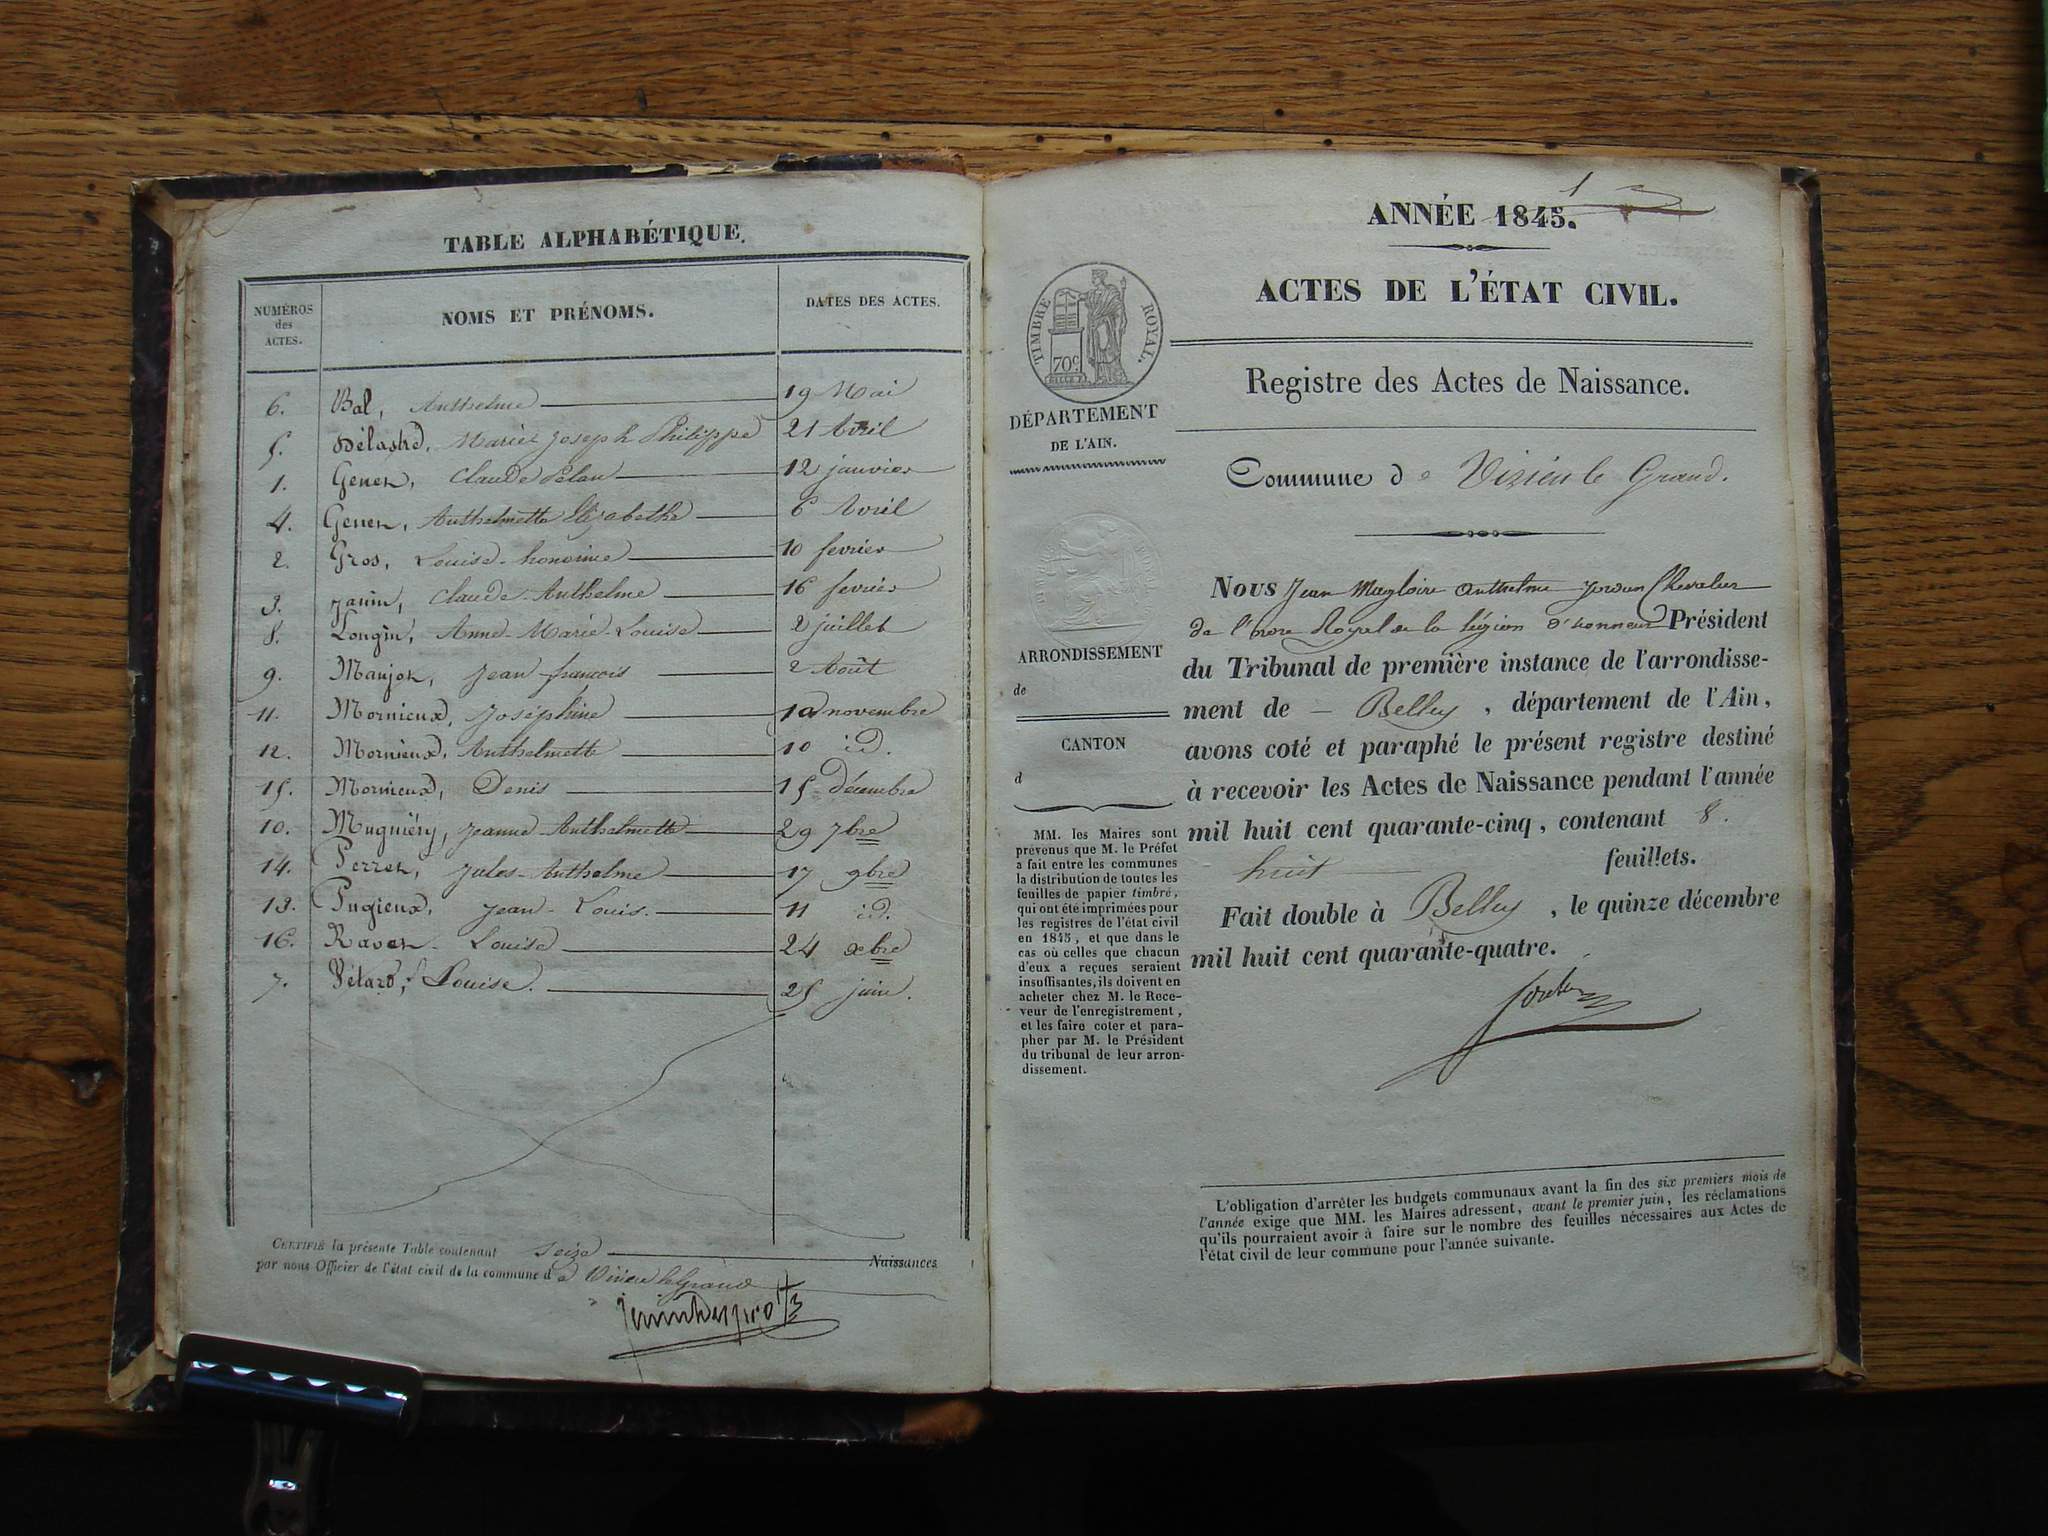 TABLE ALPHABÉTIQUE.
NUMÉROS des ACTES.
NOMS ET PRÉNOMS.
DATES DES ACTES.
6. Bal, Anthelme 19 Mai
5. Délastre, Marie Joseph Philippe 21 Avril
1. Gener, Claude 12 janvier
4. Gener, Anthelmette Elizabethe 6 Avril
2. Gros, Louise honorine 10 fevrier
3. Janin, Claude Anthelme 16 fevrier
8. Longin, Anne-Marie-Louise 2 juillet
9. Manjot, Jean françois 2 Août
11. Mornieux, Joséphine 10 novembre
12. Mornieux, Anthelmette 10 id.
15. Mornieux, Denis 15 décembre
10. Mugniéry, Jeanne Anthelmette 29 7bre
14. Perret, Jules-Anthelme 17 9bre
13. Pugieux, Jean-Louis. 11 id.
16. Louise 24 xbre
7. Pétard, Louise. 25 juin.
CERTIFIÉ la présente Table contenant seize Naissances
par nous Officier de l'état civil de la commune de Virieu le Grand
1
ANNÉE 1845.
ACTES DE L'ÉTAT CIVIL.
TIMBRE ROYAL.
70c
Registre des Actes de Naissance.
DÉPARTEMENT
DE L'AIN.
Commune de Virieu le Grand.
Nous Jean Magloire Anthelme Jordan Chevalier
de l'ordre Royal de la légion d'honneur Président
du Tribunal de première instance de l'arrondisse-
ment de Belley, département de l'Ain,
avons coté et paraphé le présent registre destiné
à recevoir les Actes de Naissance pendant l'année
mil huit cent quarante-cinq, contenant 8.
huit feuillets.
Fait double à Belley, le quinze décembre
mil huit cent quarante-quatre.
Jordan
ARRONDISSEMENT
de
CANTON
d
MM. les Maires sont
prévenus que M. le Préfet
a fait entre les communes
la distribution de toutes les
feuilles de papier timbré,
qui ont été imprimées pour
les registres de l'état civil
en 1845, et que dans le
cas où celles que chacun
d'eux a reçues seraient
insuffisantes, ils doivent en
acheter chez M. le Rece-
veur de l'enregistrement,
et les faire coter et para-
pher par M. le Président
du tribunal de leur arron-
dissement.
L'obligation d'arrêter les budgets communaux avant la fin des six premiers mois de
l'année exige que MM. les Maires adressent, avant le premier juin, les réclamations
qu'ils pourraient avoir à faire sur le nombre des feuilles nécessaires aux Actes de
l'état civil de leur commune pour l'année suivante.